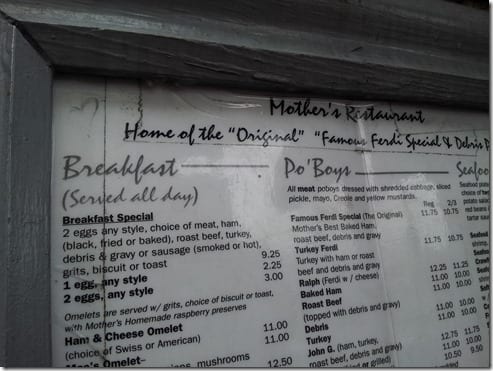 Mother's Restaurant
Home of the "Original" "Famous Ferdi Special & Debris
Breakfast
(Served all day)
Breakfast Special
2 eggs any style, choice of meat, ham,
(black, fried or baked), roast beef, turkey,
debris & gravy or sausage (smoked or hot),
grits, biscuit or toast 9.25
1 egg, any style 2.25
2 eggs, any style 3.00
Omelets are served w/ grits, choice of biscuit or toast,
with Mother's Homemade raspberry preserves
Ham & Cheese Omelet 11.00
(choice of Swiss or American) 11.00
mushrooms 12.50
Po'Boys
All meat poboys dressed with shredded cabbage, sliced
pickle, mayo, Creole and yellow mustards.
Reg 2/3
Famous Ferdi Special (The Original) 11.75 10.75
Mother's Best Baked Ham,
roast beef, debris and gravy
Turkey Ferdi 11.75 10.75
Turkey with ham or roast
beef and debris and gravy
Ralph (Ferdi w / cheese) 12.25 11.25
Baked Ham 11.00 10.00
Roast Beef 11.00 10.00
(topped with debris and gravy)
Debris 11.00 10.00
Turkey
John G. (ham, turkey, 12.75 11.75
roast beef, debris and gravy)
Seafoo
Seafood